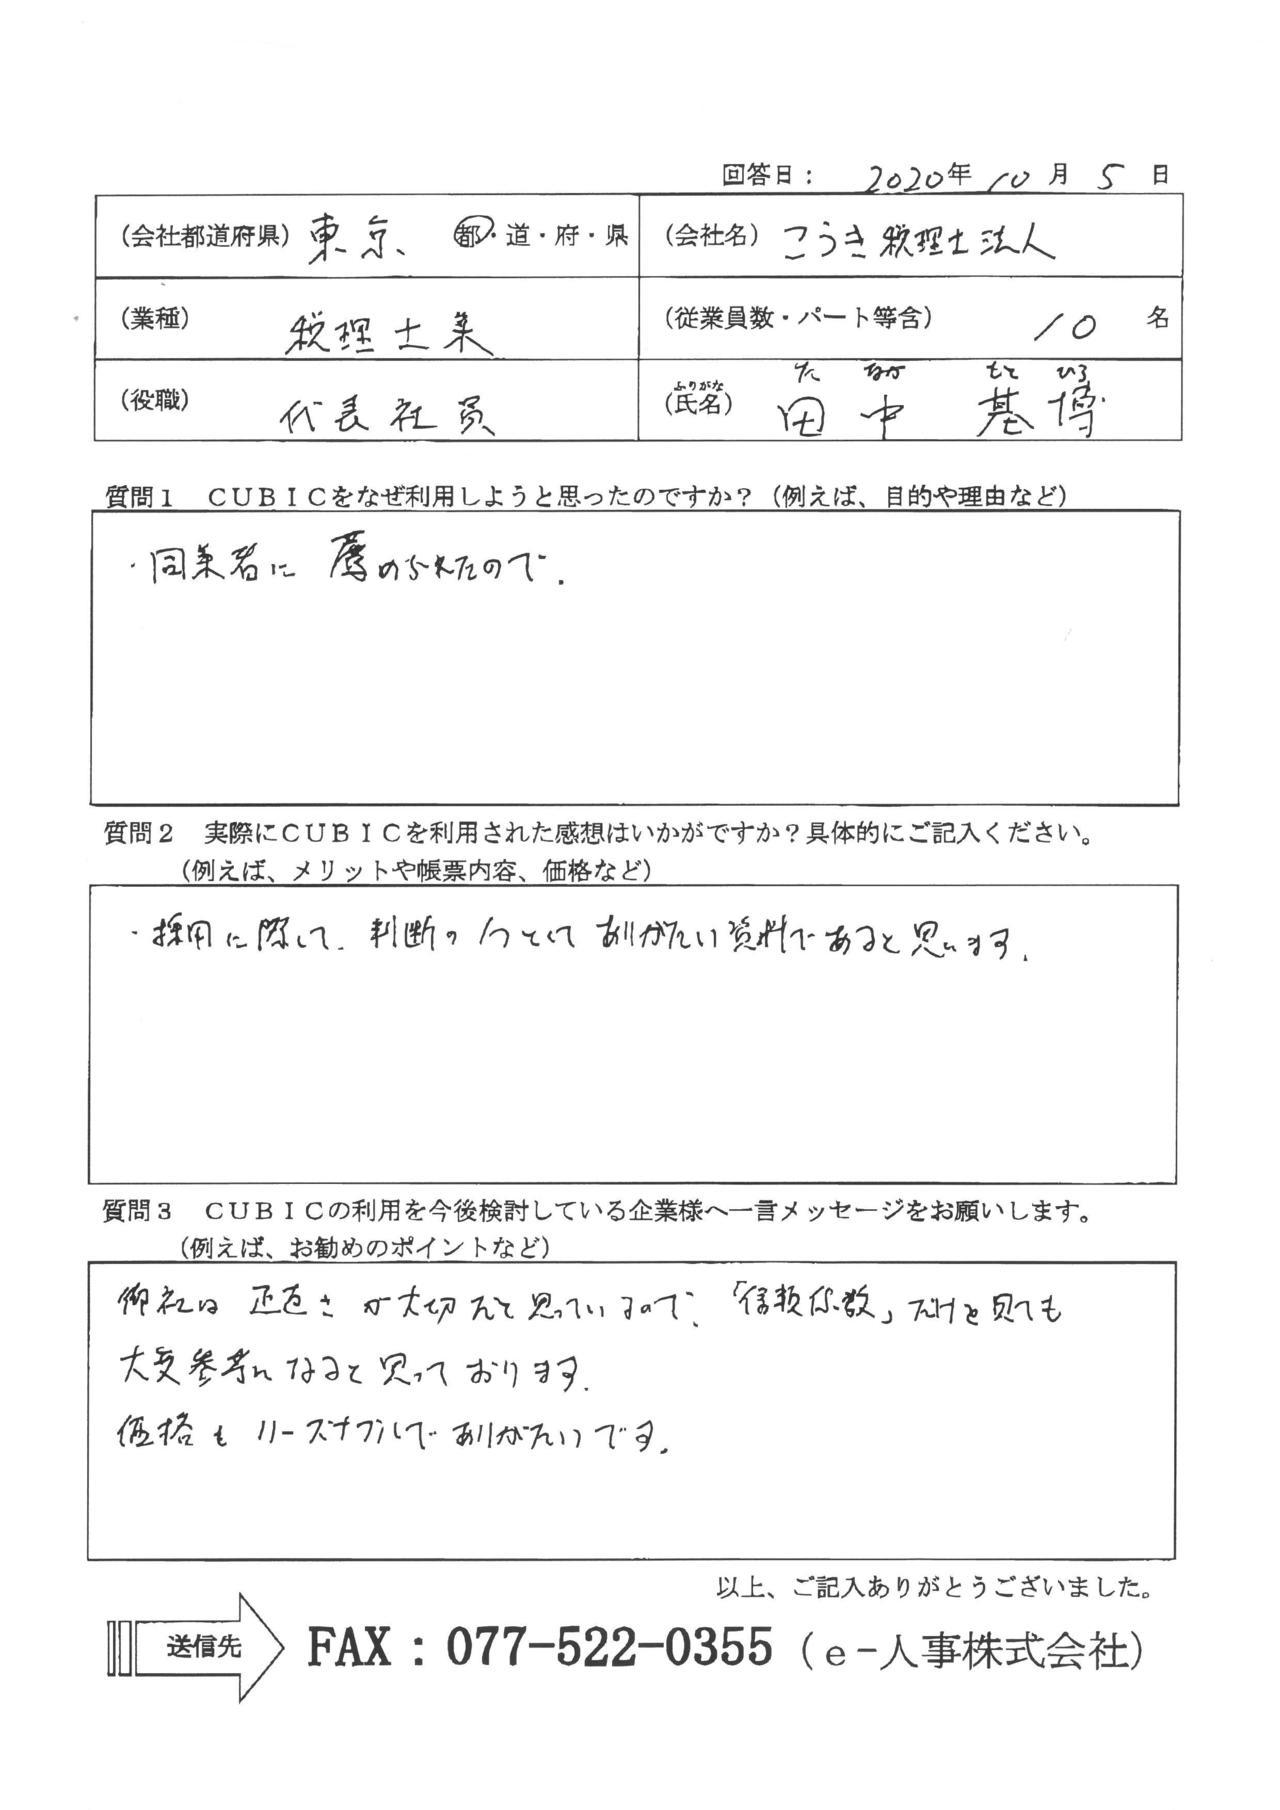 回答日： 2020年 10 月 5 日
（会社都道府県） 東京 都・道・府・県 （会社名） こうき税理士法人
（業種） 税理士業 （従業員数・パート等含） 10 名
たなか もとひろ
（役職） 代表社員 （氏名） ふりがな 田中 基博
質問１　ＣＵＢＩＣをなぜ利用しようと思ったのですか？（例えば、目的や理由など）
・同業者に 薦められたので.
質問２　実際にＣＵＢＩＣを利用された感想はいかがですか？具体的にご記入ください。
（例えば、メリットや帳票内容、価格など）
・採用に際して、判断の1つとしてありがたい資料であると思います.
質問３　ＣＵＢＩＣの利用を今後検討している企業様へ一言メッセージをお願いします。
（例えば、お勧めのポイントなど）
御社は 正直さ が大切だと思っているので、「信頼係数」だけを見ても
大変参考になると思っております.
価格も リーズナブルで ありがたいです.
以上、ご記入ありがとうございました。
送信先 FAX：077-522-0355（ｅ－人事株式会社）